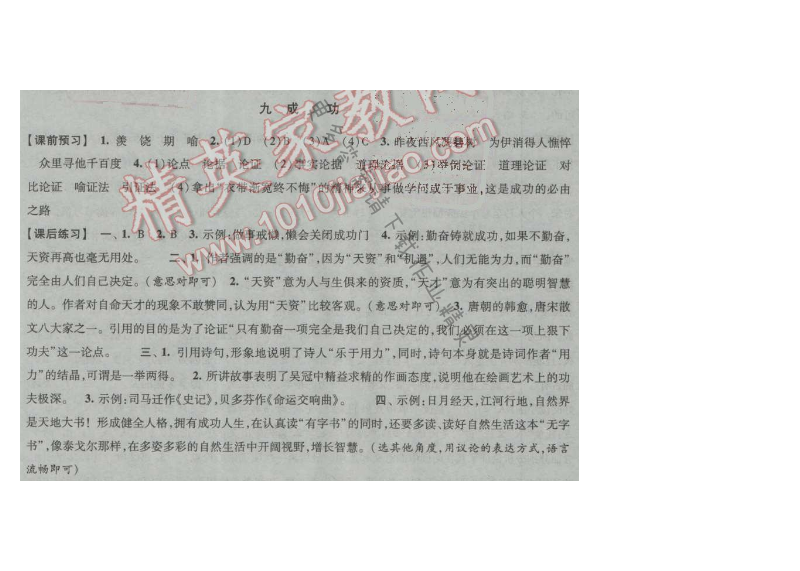 九 成 功
【课前预习】 1. 羡 饶 期 喻 2. (1)D (2)B (3)A (4)C 3. 昨夜西风凋碧树 为伊消得人憔悴
众里寻他千百度 4. (1)论点 论据 论证 (2)事实论据 道理论据 (3)举例论证 道理论证 对
比论证 喻证法 引证法 (4)拿出“衣带渐宽终不悔”的精神来从事做学问或干事业,这是成功的必由
之路
【课后练习】 一、1. B 2. B 3. 示例:做事戒懒,懒会关闭成功门 4. 示例:勤奋铸就成功,如果不勤奋,
天资再高也毫无用处。 二、1. 作者强调的是“勤奋”,因为“天资”和“机遇”,人们无能为力,而“勤奋”
完全由人们自己决定。(意思对即可) 2. “天资”意为人与生俱来的资质,“天才”意为有突出的聪明智慧
的人。作者对自命天才的现象不敢赞同,认为用“天资”比较客观。(意思对即可) 3. 唐朝的韩愈,唐宋散
文八大家之一。引用的目的是为了论证“只有勤奋一项完全是我们自己决定的,我们必须在这一项上狠下
功夫”这一论点。 三、1. 引用诗句,形象地说明了诗人“乐于用力”,同时,诗句本身就是诗词作者“用
力”的结晶,可谓是一举两得。 2. 所讲故事表明了吴冠中精益求精的作画态度,说明他在绘画艺术上的功
夫极深。 3. 示例:司马迁作《史记》,贝多芬作《命运交响曲》。 四、示例:日月经天,江河行地,自然界
是天地大书!形成健全人格,拥有成功人生,在认真读“有字书”的同时,还要多读、读好自然生活这本“无字
书”,像泰戈尔那样,在多姿多彩的自然生活中开阔视野,增长智慧。(选其他角度,用议论的表达方式,语言
流畅即可)
精英家教网
www.1010jiajiao.com